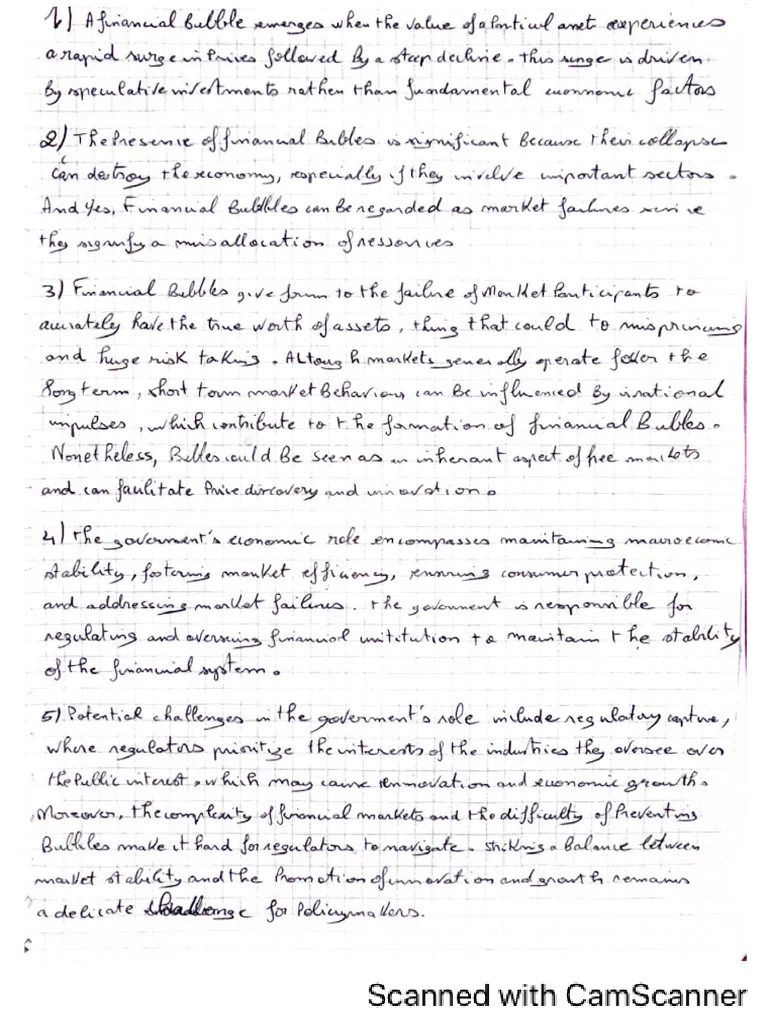 1) A financial Bubble emerges when the value of a Particul asset experiences
a rapid surge in Prices followed By a steep decline. this surge is driven
By speculative investments rather than fundamental economic factors
2) The Presence of financial Bubbles is significant Because their collapse
can destroy the economy, especially if they involve important sectors.
And Yes, Financial Bubbles can Be regarded as market failures since
they signify a misallocation of ressources
3) Financial Bubbles give form to the failure of Market Participants to
accurately have the true worth of assets, thing that could to mispricing
and huge risk taking. ALtough markets generally operate foller the
long term, short term market Behaviour can Be influenced By irrational
impulses, which contribute to the formation of financial Bubbles.
Nonetheless, Bubbles could Be seen as an inherant aspect of free markets
and can facilitate Price discovery and innovation.
4) the goverment's economic role encompasses maintaining macroecomic
stability, fostering market efficiency, ensuring consumer protection,
and addressing market failures. the goverment is responsible for
regulating and overseeing financial institution to maintain the stability
of the financial system.
5) Potential challenges in the goverment's role include regulatory capture,
where regulators prioritize the interests of the industries they oversee over
the Public interest, which may cause innovation and economic growth.
Moreover, the complexity of financial markets and the difficulty of Preventing
Bubbles make it hard for regulators to navigate. striking a balance between
market stability and the Promotion of innovation and growth remains
a delicate challenge for Policymakers.
Scanned with CamScanner